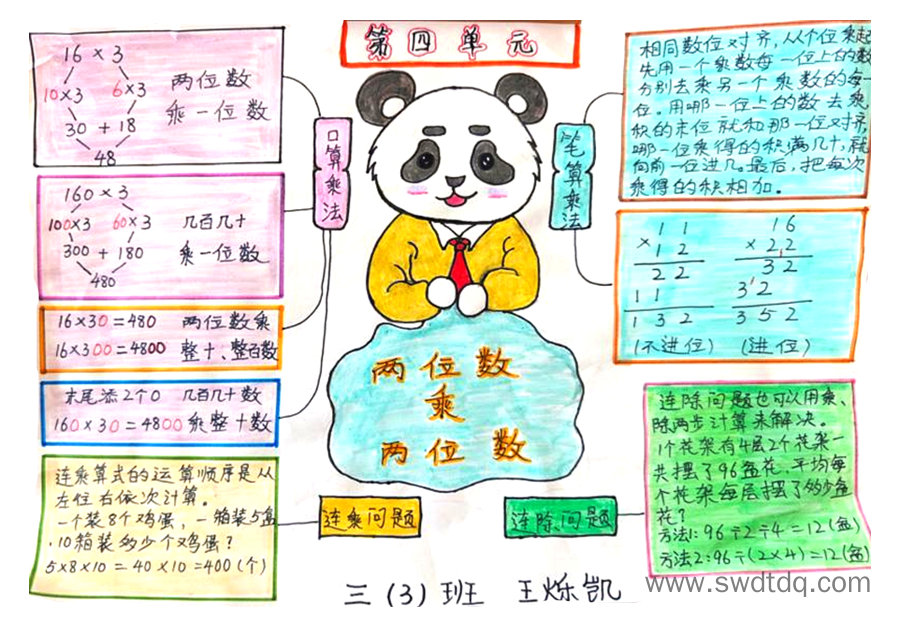 第四单元
16×3
10×3 6×3
30+18
48
两位数
乘一位数
160×3
100×3 60×3
300+180
480
几百几十
乘一位数
16×30=480 两位数乘
16×300=4800 整十、整百数
末尾添2个0 几百几十数
160×30=4800 乘整十数
连乘算式的运算顺序是从
左往右依次计算。
一个装8个鸡蛋，一箱装5盒
.10箱装多少个鸡蛋？
5×8×10=40×10=400(个)
口算乘法
笔算乘法
两位数
乘
两位数
连乘问题
连除问题
相同数位对齐，从个位乘起
先用一个乘数每一位上的数
分别去乘另一个乘数的每一
位。用哪一位上的数去乘，
积的末位就和那一位对齐，
哪一位乘得的积满几十，就
向前一位进几。最后，把每次
乘得的积相加。
11
×12
22
11
132
(不进位)
16
×22
32
32
352
(进位)
连除问题也可以用乘、
除两步计算来解决。
1个花架有4层2个花架一
共摆了96盆花，平均每
个花架每层摆了多少盆
花？
方法1:96÷2÷4=12(盆)
方法2:96÷(2×4)=12(盆)
三(3)班 王烁凯
www.swdtdq.com